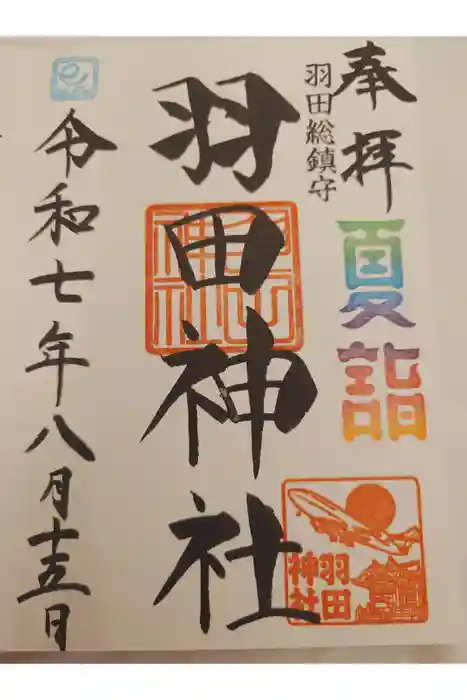 奉拝
夏詣
羽田総鎮守
羽田神社
羽田神社
羽田
神社
令和七年八月十五日